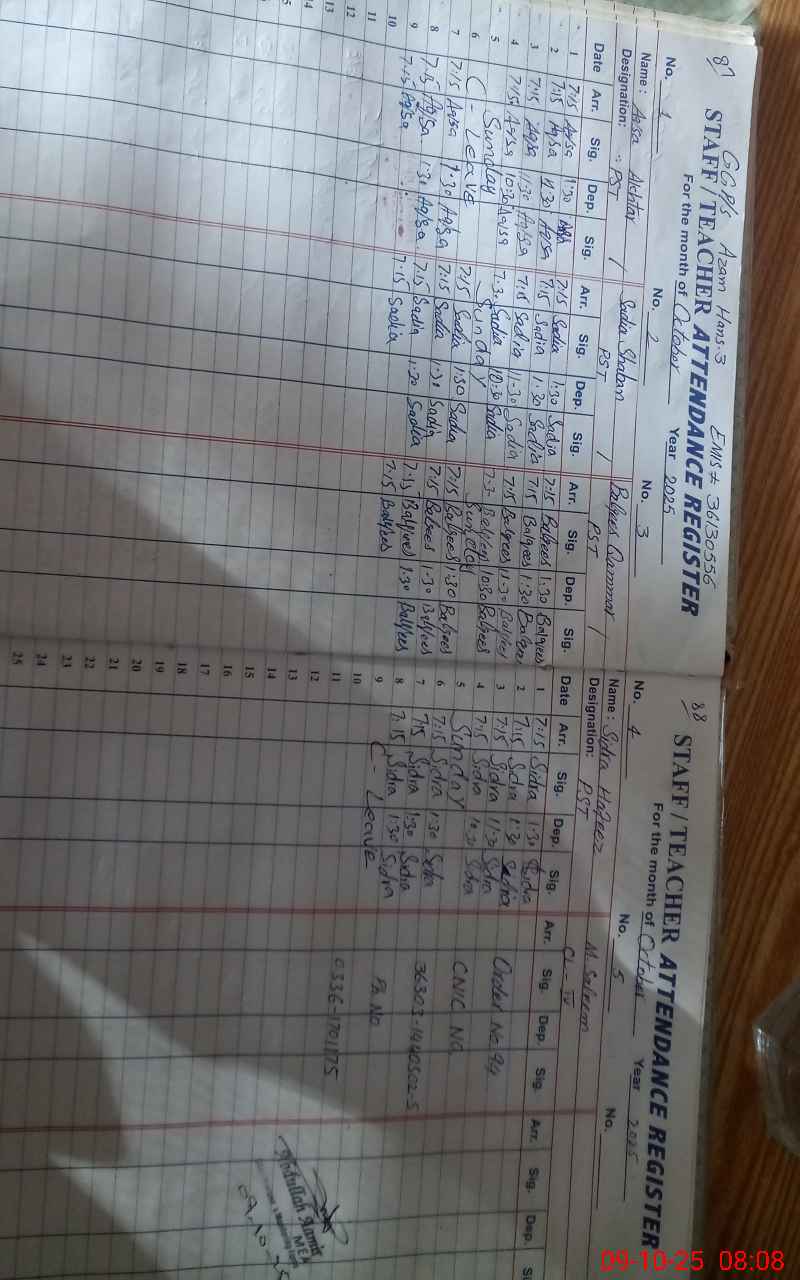 87
GGP/S Azam Hans.3 EMIS# 36130556
STAFF/TEACHER ATTENDANCE REGISTER
For the month of October Year 2025
No. 1 No. 2 No. 3
Name: Aqsa Akhtar Sadia Shaban Balqees Qammar
Designation: PST PST PST
Date Arr. Sig. Dep. Sig. Arr. Sig. Dep. Sig. Arr. Sig. Dep. Sig.
1 7:15 Aqsa 1:30 Aqsa 7:15 Sadia 1:30 Sadia 7:15 Balqees 1:30 Balqees
2 7:15 Aqsa 1:30 Aqsa 7:15 Sadia 1:30 Sadia 7:15 Balqees 1:30 Balqees
3 7:15 Aqsa 11:30 Aqsa 7:15 Sadia 11:30 Sadia 7:15 Balqees 11:30 Balqees
4 7:15 Aqsa 10:30 Aqsa 7:30 Sadia 10:30 Sadia 7:30 Balqees 10:30 Balqees
5 Sunday Sunday Sunday
6 C-Leave 7:15 Sadia 1:30 Sadia 7:15 Balqees 1:30 Balqees
7 7:15 Aqsa 1:30 Aqsa 7:15 Sadia 1:30 Sadia 7:15 Balqees 1:30 Balqees
8 7:15 Aqsa 1:30 Aqsa 7:15 Sadia 1:30 Sadia 7:15 Balqees 1:30 Balqees
9 7:15 Aqsa 7:15 Sadia 7:15 Balqees
10
11
12
13
14
15
88
STAFF/TEACHER ATTENDANCE REGISTER
For the month of October Year 2025
No. 4 No. 5 No.
Name: Sidra Hafeez M. Saleem
Designation: PST CL-IV
Date Arr. Sig. Dep. Sig. Arr. Sig. Dep. Sig. Arr. Sig. Dep. Si
1 7:15 Sidra 1:30 Sidra
2 7:15 Sidra 1:30 Sidra
3 7:15 Sidra 11:30 Sidra Order No. 94
4 7:15 Sidra 10:30 Sidra
5 Sunday CNIC No
6 7:15 Sidra 1:30 Sidra
7 7:15 Sidra 1:30 Sidra 36303-1440502-5
8 7:15 Sidra 1:30 Sidra
9 C-Leave Ph. No
10
11 0336-1701175
12
13
14
15
16
17
18
19
20
21
22
23
24
25
Abdullah Aamir
MEA
09-10-25 08:08